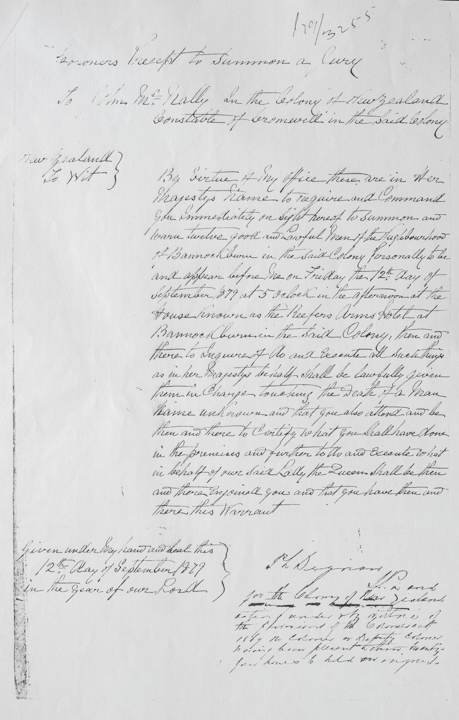 179/3255
Coroners Precept to Summon a Jury
To John McNally In the Colony of New Zealand
Constable of Cromwell in the Said Colony
New Zealand
To Wit
By Virtue of My Office these are in Her
Majestys Name to require and Command
You Immediately on Sight hereof to Summon and
warn twelve good and Lawful Men of the Neighbourhood
of Bannockburn in the Said Colony Personally to be
and appear before Me on Friday the 12th day of
September 1879 at 5 oclock in the afternoon at the
House Known as the Reefers Arms Hotel at
Bannockburn in the Said Colony, then and
there to Inquire of Do and Execute all Such things
as in her Majestys behalf Shall be lawfully given
them in Charge touching the Death of a Man
Name unknown and that you also attend and be
then and there to Certify what you Shall have done
in the premises and further to Do and Execute what
in behalf of our Said Lady the Queen Shall be then
and there Enjoined you and that you have then and
there this Warrant
Given under My hand and Seal this
12th day of September 1879
in the Year of our Lord
J.P. in and
for the Colony of New Zealand
acting under by virtue of
the provisions of the Coroners Act
1867 no Coroner or Deputy Coroner
having been present within twenty
four hours to hold an inquest